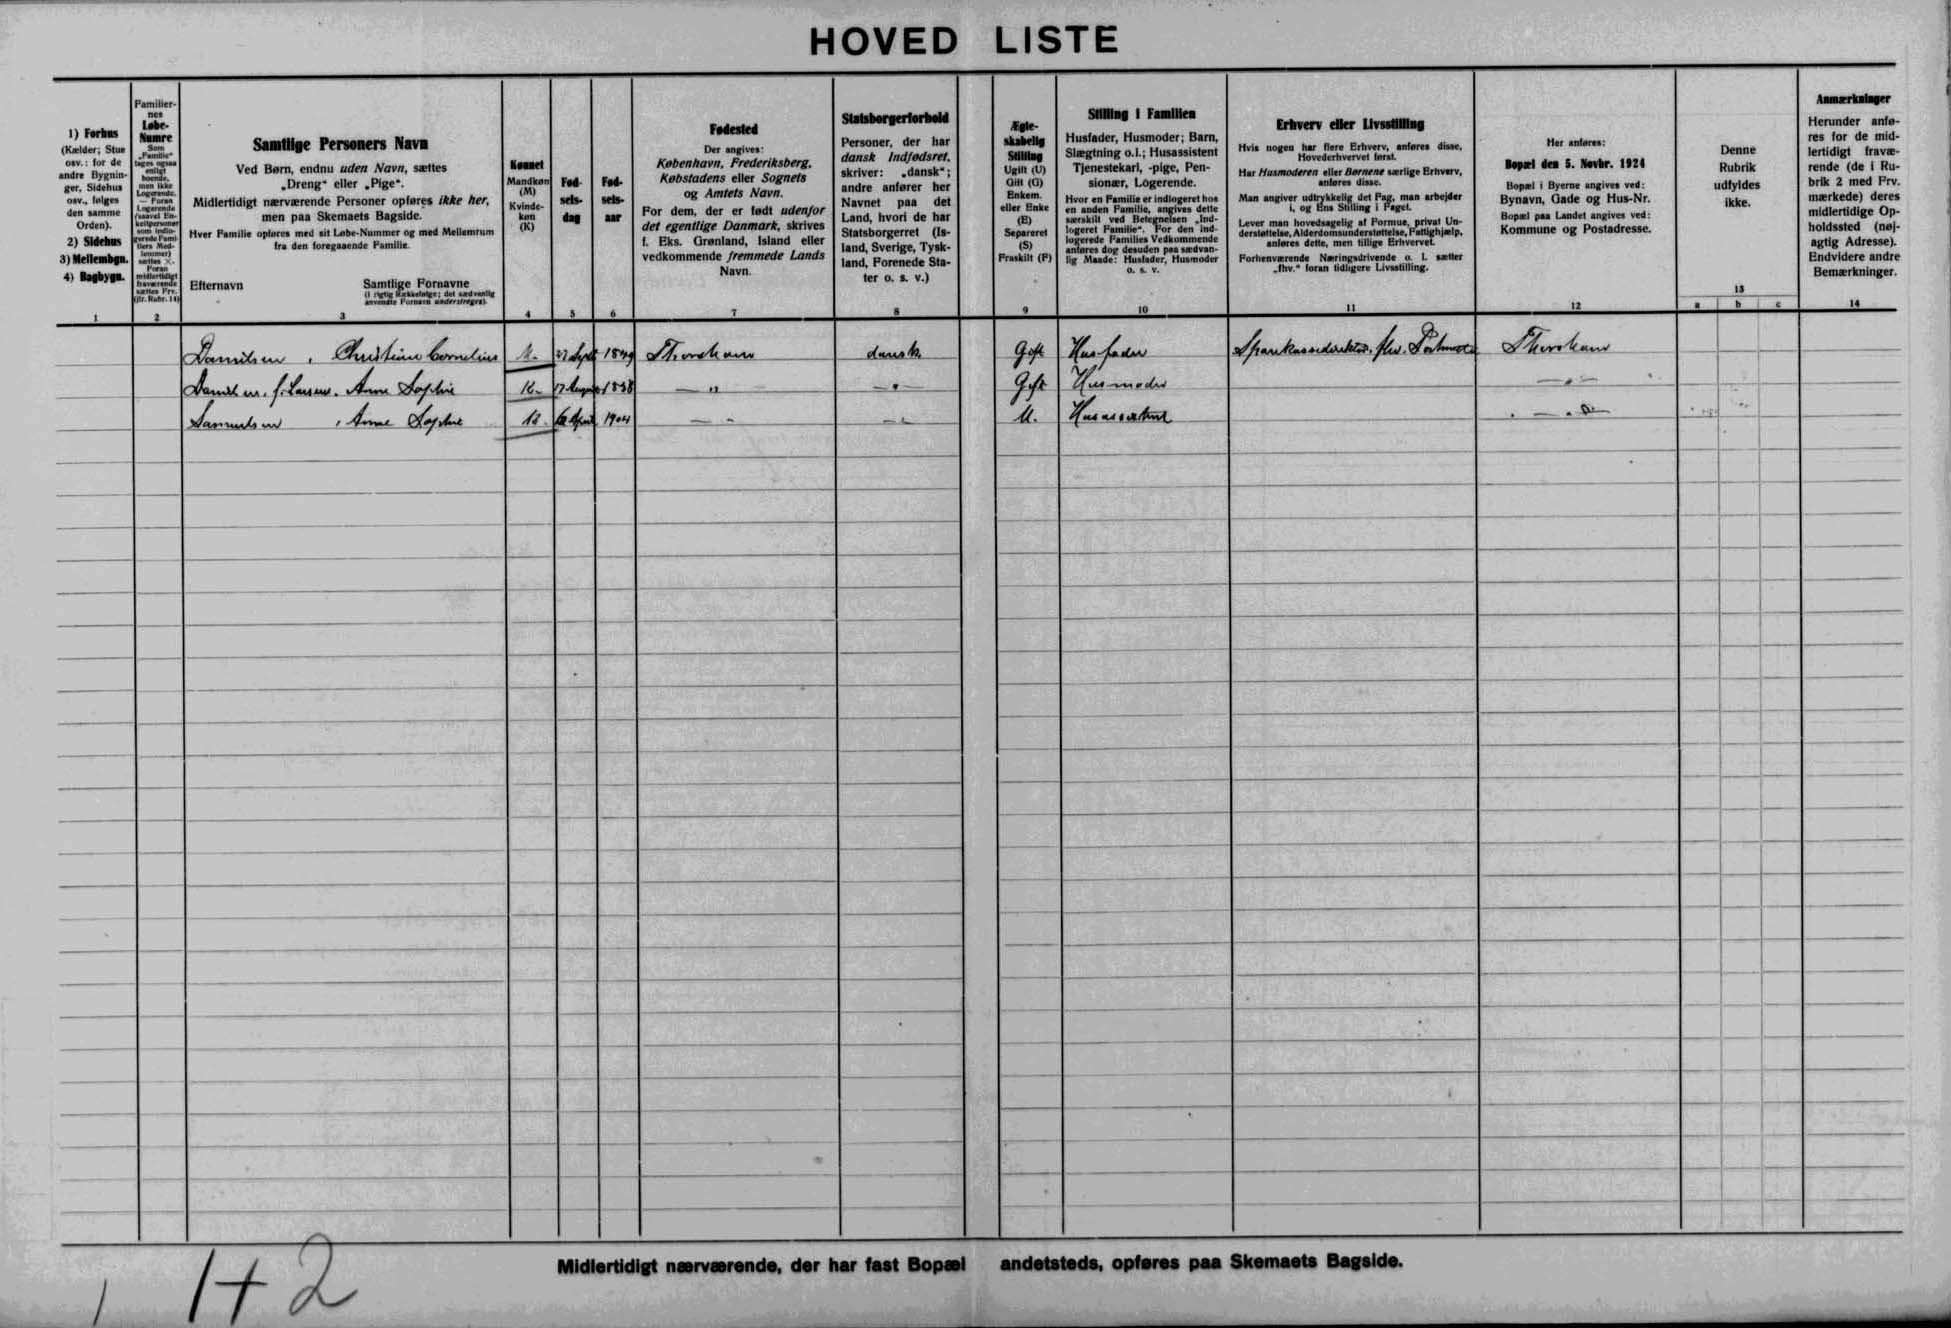 HOVED LISTE
1) Forhus
(Kælder; Stue
osv.: for de
andre Bygnin-
ger, Sidehus
osv., følges
den samme
Orden).
2) Sidehus
3) Mellembgn.
4) Bagbygn.
1
Familier-
nes
Løbe-
Numre
Som
„Familie“
tages ogsaa
enligt
boende,
men ikke
Logerende.
— Foran
Logerende
(saavel En-
keltpersoner
som indlo-
gerede Fami-
liers Med-
lemmer)
sættes ×.
Foran
midlertidigt
fraværende
sættes Frv.
(jfr. Rubr. 14)
2
Samtlige Personers Navn
Ved Børn, endnu uden Navn, sættes
„Dreng“ eller „Pige“.
Midlertidigt nærværende Personer opføres ikke her,
men paa Skemaets Bagside.
Hver Familie opføres med sit Løbe-Nummer og med Mellemrum
fra den foregaaende Familie.
Efternavn Samtlige Fornavne
(i rigtig Rækkefølge; det sædvanlig
anvendte Fornavn understreges).
3
Kønnet
Mandkøn
(M)
Kvinde-
køn
(K)
4
Fød-
sels-
dag
5
Fød-
sels-
aar
6
Fødested
Der angives:
København, Frederiksberg,
Købstadens eller Sognets
og Amtets Navn.
For dem, der er født udenfor
det egentlige Danmark, skrives
f. Eks. Grønland, Island eller
vedkommende fremmede Lands
Navn.
7
Statsborgerforhold
Personer, der har
dansk Indfødsret,
skriver: „dansk“;
andre anfører her
Navnet paa det
Land, hvori de har
Statsborgerret (Is-
land, Sverige, Tysk-
land, Forenede Sta-
ter o. s. v.)
8
Ægte-
skabelig
Stilling
Ugift (U)
Gift (G)
Enkem.
eller Enke
(E)
Separeret
(S)
Fraskilt (F)
9
Stilling i Familien
Husfader, Husmoder; Barn,
Slægtning o.l.; Husassistent
Tjenestekarl, -pige, Pen-
sionær, Logerende.
Hvor en Familie er indlogeret hos
en anden Familie, angives dette
særskilt ved Betegnelsen „Ind-
logeret Familie“. For den ind-
logerede Families Vedkommende
anføres dog desuden paa sædvan-
lig Maade: Husfader, Husmoder
o. s. v.
10
Erhverv eller Livsstilling
Hvis nogen har flere Erhverv, anføres disse,
Hovederhvervet først.
Har Husmoderen eller Børnene særlige Erhverv,
anføres disse.
Man angiver udtrykkelig det Fag, man arbejder
i, og Ens Stilling i Faget.
Lever man hovedsagelig af Formue, privat Un-
derstøttelse, Alderdomsunderstøttelse, Fattighjælp,
anføres dette, men tillige Erhvervet.
Forhenværende Næringsdrivende o. l. sætter
„fhv.“ foran tidligere Livsstilling.
11
Her anføres:
Bopæl den 5. Novbr. 1924
Bopæl i Byerne angives ved:
Bynavn, Gade og Hus-Nr.
Bopæl paa Landet angives ved:
Kommune og Postadresse.
12
Denne
Rubrik
udfyldes
ikke.
13
a b c
Anmærkninger
Herunder anfø-
res for de mid-
lertidigt fravæ-
rende (de i Ru-
brik 2 med Frv.
mærkede) deres
midlertidige Op-
holdssted (nøj-
agtig Adresse).
Endvidere andre
Bemærkninger.
14
Danielsen, Christian Cornelius M. 27 Septb 1849 Thorshavn dansk Gift Husfader Sparekassedirektør, fhv. Thorshavn
Danielsen, f. Larsen. Anne Sophie K. 17 August 1858 — „ — — „ — Gift Husmoder — „ —
Samuelsen, Anne Sophie K. April 1904 — „ — — „ — U. Husassistent — „ —
Midlertidigt nærværende, der har fast Bopæl andetsteds, opføres paa Skemaets Bagside.
1 1+2